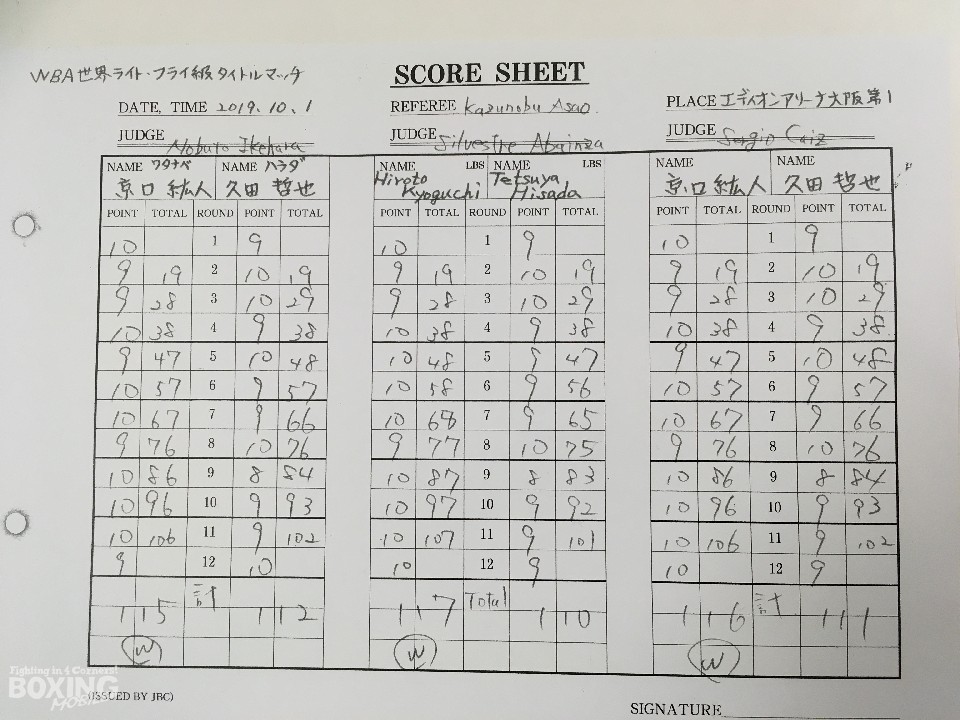 WBA世界ライト・フライ級タイトルマッチ
SCORE SHEET
DATE, TIME 2019.10.1 REFEREE Kazunobu Asao PLACE エディオンアリーナ大阪第1
JUDGE Nobuto Ikehara JUDGE Silvestre Abainza JUDGE Sergio Caiz
NAME ワタナベ NAME ハラダ NAME LBS NAME LBS NAME NAME
京口紘人 久田哲也 Hiroto Kyoguchi Tetsuya Hisada 京口紘人 久田哲也
POINT TOTAL ROUND POINT TOTAL POINT TOTAL ROUND POINT TOTAL POINT TOTAL ROUND POINT TOTAL
10 1 9 10 1 9 10 1 9
9 19 2 10 19 9 19 2 10 19 9 19 2 10 19
9 28 3 10 29 9 28 3 10 29 9 28 3 10 29
10 38 4 9 38 10 38 4 9 38 10 38 4 9 38
9 47 5 10 48 10 48 5 9 47 9 47 5 10 48
10 57 6 9 57 10 58 6 9 56 10 57 6 9 57
10 67 7 9 66 10 68 7 9 65 10 67 7 9 66
9 76 8 10 76 9 77 8 10 75 9 76 8 10 76
10 86 9 8 84 10 87 9 8 83 10 86 9 8 84
10 96 10 9 93 10 97 10 9 92 10 96 10 9 93
10 106 11 9 102 10 107 11 9 101 10 106 11 9 102
9 12 10 10 12 9 10 12 9
115 計 112 117 Total 110 116 計 111
W W W
Fighting in 4 Corners!
BOXING
MOBILE
(ISSUED BY JBC)
SIGNATURE